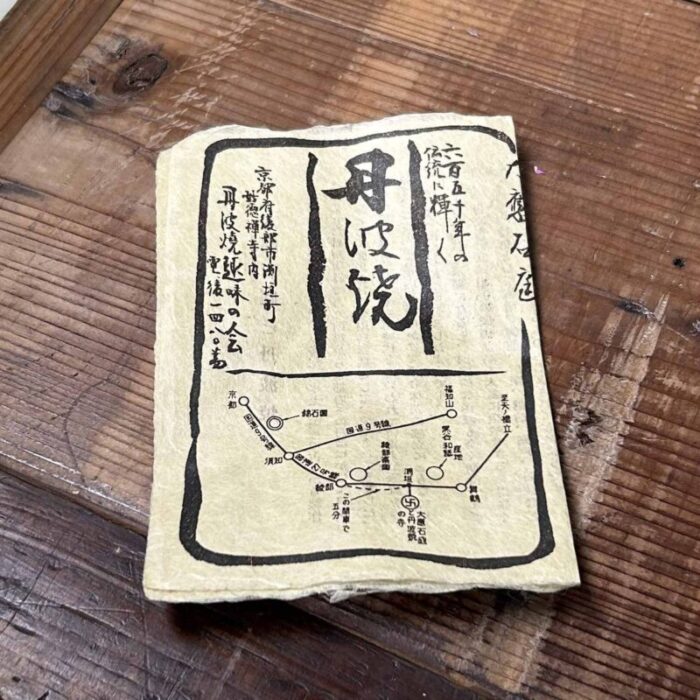 應石庭
六百五十年の
伝統に輝く
丹波焼
京都府綾部市渕垣町
禅寺内
丹波焼趣味の会
一四八〇番
京都
福知山
天ノ橋立
国道9号線
国道9号線
須知
国道27号線
綾部
黒谷和紙
産地
渕垣
舞鶴
この間車で
五分
大應石庭
と丹波焼
の寺